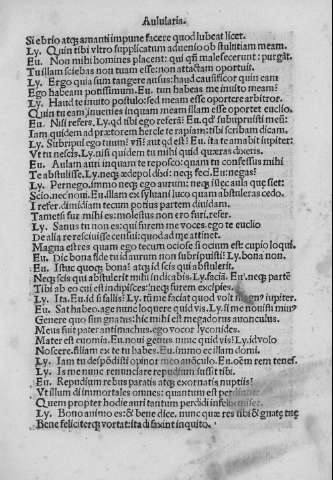 Aulularia.
Si ebrio atq; amanti impune facere quod lubeat licet.
Ly. Quin tibi vltro supplicatum aduenio ob stultitiam meam.
Eu. Non mihi homines placent: qui quum malefecerunt: purgãt.
Tu illam sciebas non tuam esse: non attactam oportuit.
Ly. Ergo quia sum tangere ausus: haud causificor quin eam
Ego habeam potissimum. Eu. tun habeas me inuito meam?
Ly. Haud te inuito postulo: sed meam esse oportere arbitror.
Quin tu eam inuenies inquam meam illam esse oportet euclio.
Eu. Nisi refers. Ly. qd tibi ego referã? Eu. qd' subripuisti meũ:
Iam quidem ad prætorem hercle te rapiam: tibi scribam dicam.
Ly. Subripui ego tuum? vñ? aut qd est? Eu. ita te amabit iupiter:
Vt tu nescis. Ly. nisi quidem tu mihi quid quæras dixeris.
Eu. Aulam auri inquam te reposco: quam tu confessus mihi
Te abstulisse. Ly. neq; ædepol dixi: neq; feci. Eu: negas?
Ly. Pernego. immo neq; ego aurum: neq; istæc aula quæ siet:
Scio. nec noui. Eu. illam ex syluani luco quam abstuleras cedo.
I refer. dimidiam tecum potius partem diuidam.
Tametsi fur mihi es: molestus non ero furi. refer.
Ly. Sanus tu non es: qui furem me voces. ego te euclio
De alia re resciuisse censui: quod ad me attinet.
Magna est res quam ego tecum ociose si ocium est: cupio loqui.
Eu. Dic bona fide tu id aurum non subripuisti? Ly. bona non.
Eu. Istuc quoq; bona? atq; id scis qui abstulerit.
Neq; scis qui abstulerit mihi indicabis. Ly. faciã. Eu. neq; partẽ
Tibi ab eo cui est indipisces: neq; furem excipies.
Ly. Ita. Eu. id si fallis? Ly. tũ me faciat quod volt magn9 iupiter.
Eu. Sat habeo. age nunc loquere quid vis. Ly. si me nouisti min9
Genere quo sim gnatus: hic mihi est megadorus auonculus.
Meus fuit pater antimachus. ego vocor lyconides.
Mater est eunomia. Eu. noui genus: nunc quid vis? Ly. id volo
Noscere. filiam ex te tu habes. Eu. immo eccillam domi.
Ly. Iam tu despõdisti opinor meo auũculo. Eu. oẽm rem tenes.
Ly. Is me nunc renunciare repudium iussit tibi.
Eu. Repudium rebus paratis atq; exornatis nuptiis?
Vt illum di immortales omnes: quantum est perduint
Quem propter hodie auri tantum perdidi infelix miser.
Ly. Bono animo es: & bene dice. nunc quæ res tibi & gnatę tuę
Bene feliciterq; vortat: ita di faxint inquito.